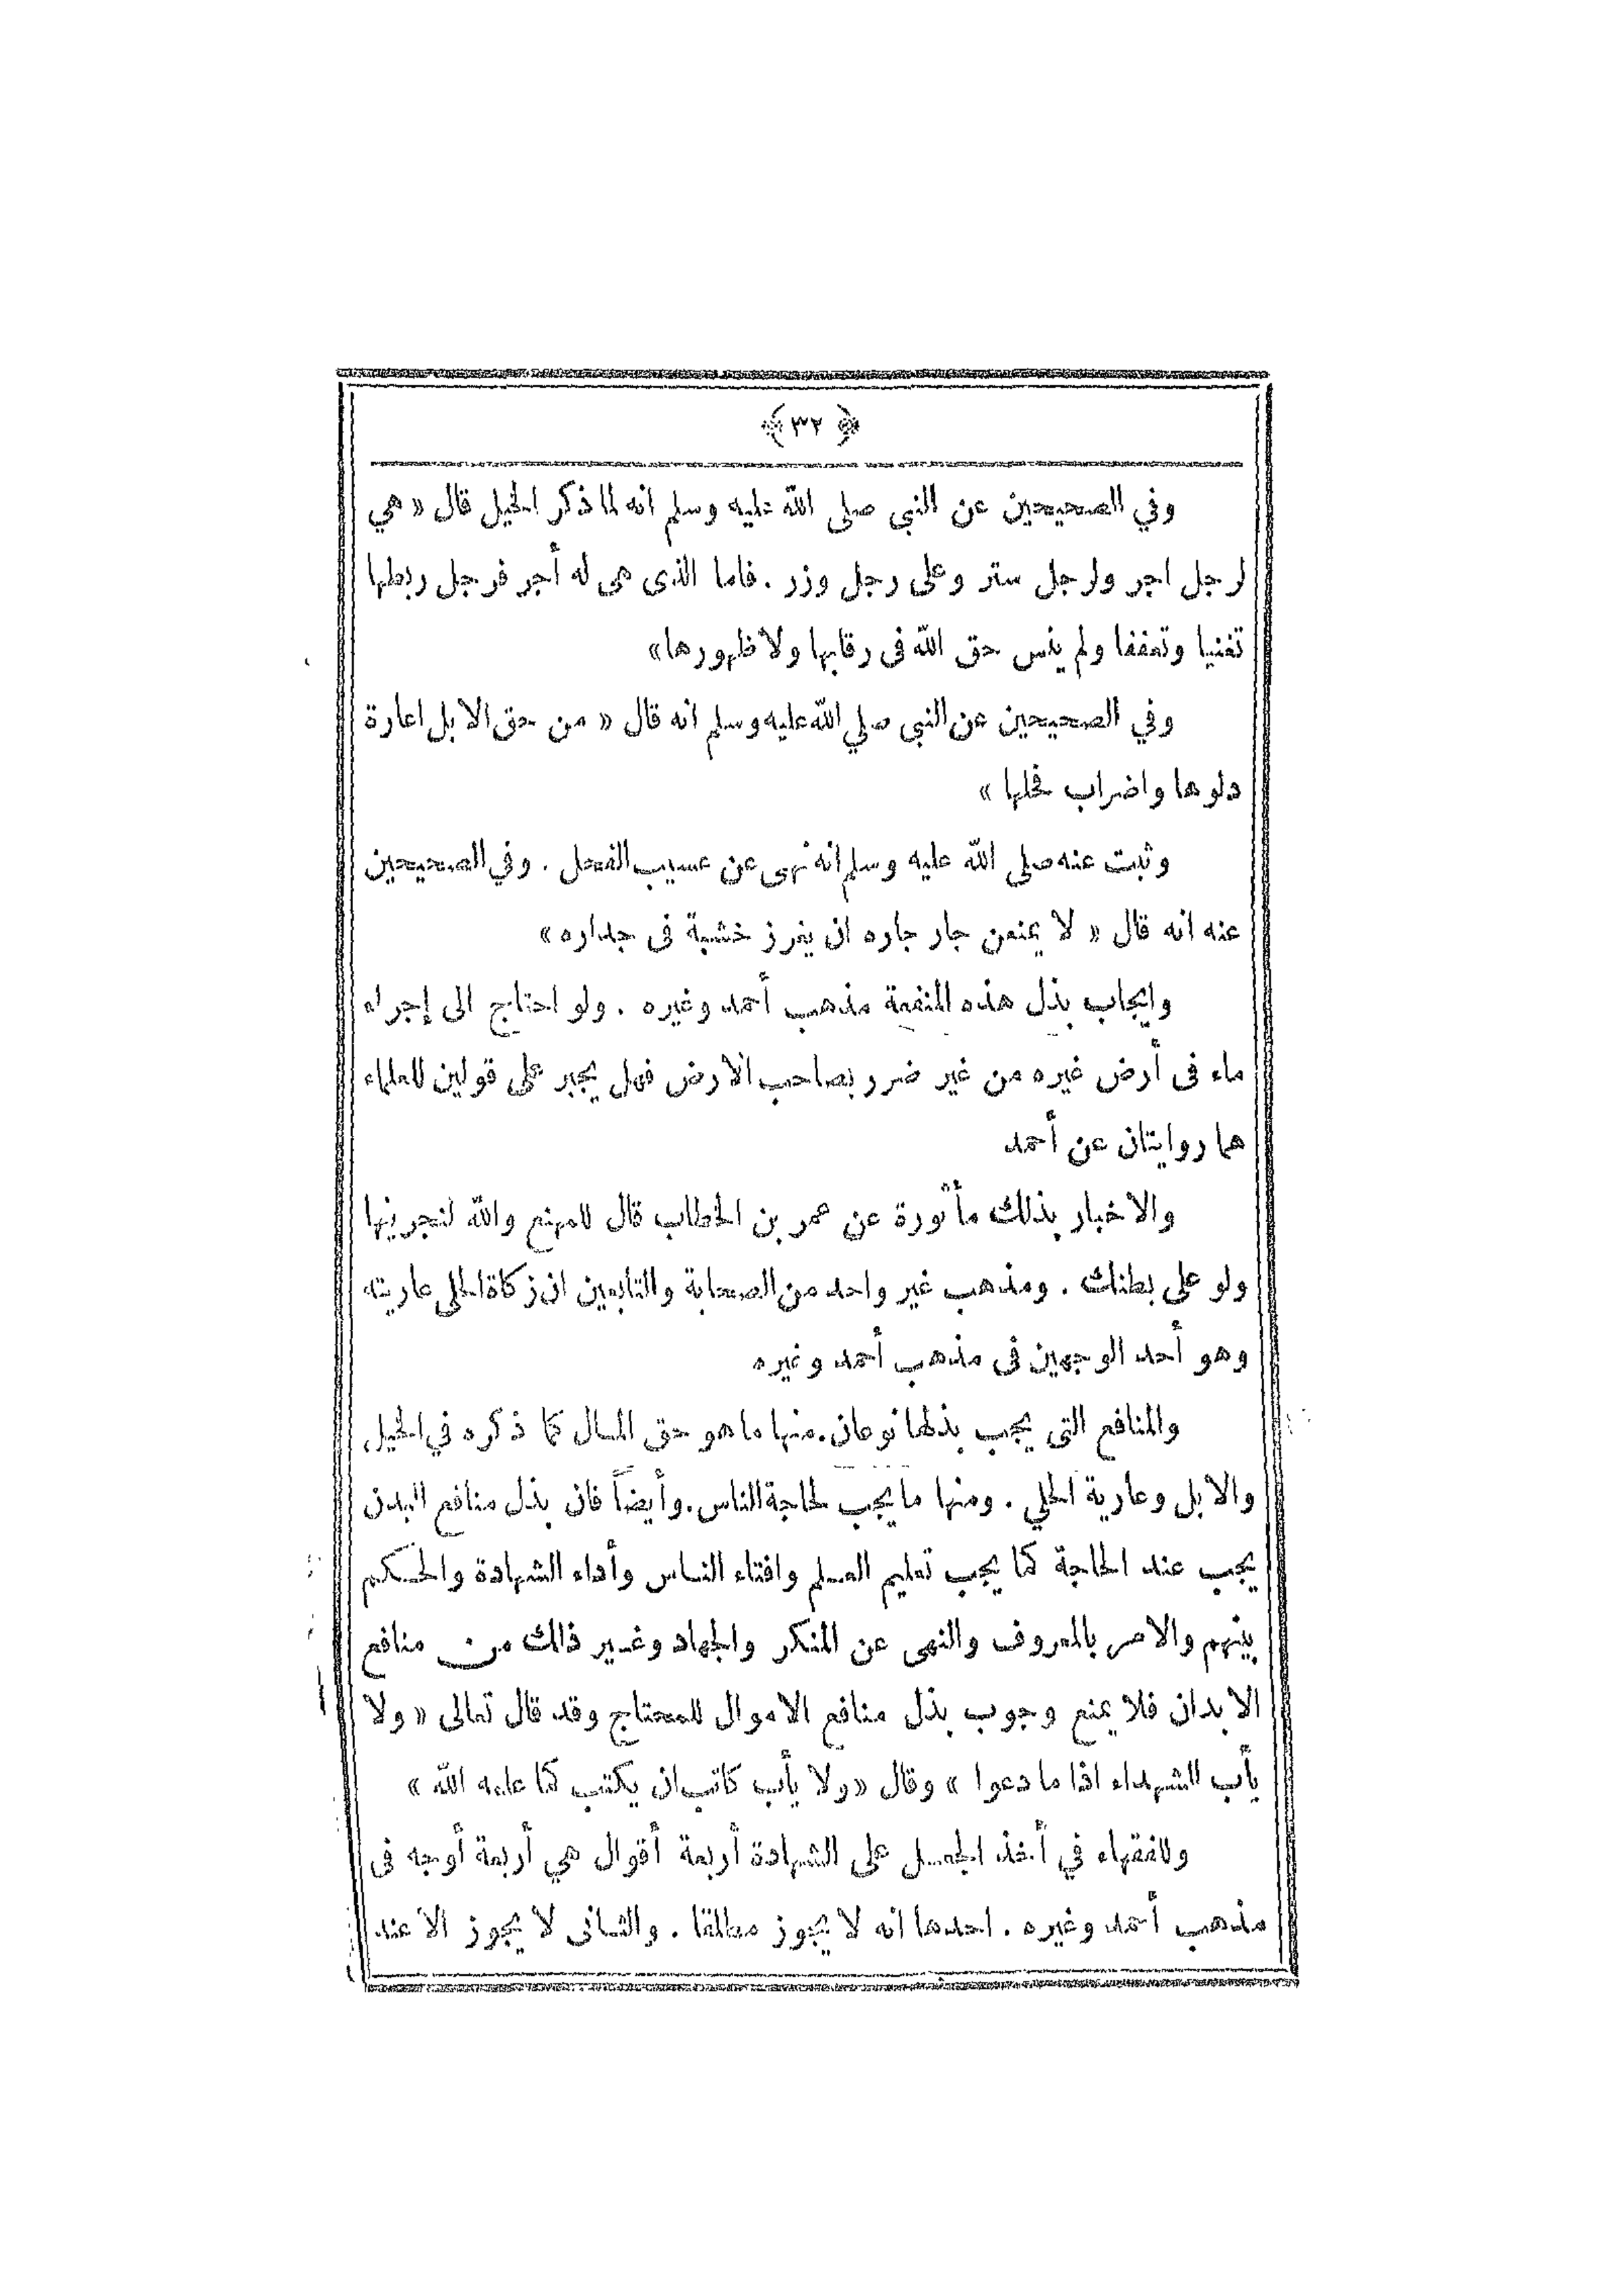 ﴿ ٣٢ ﴾
وفي الصحيحين عن النبي صلى الله عليه وسلم انه لما ذكر الخيل قال « هي
لرجل اجر ولرجل ستر وعلى رجل وزر . فاما الذى هى له أجر فرجل ربطها
تغنيا وتعففا ولم ينس حق الله فى رقابها ولا ظهورها»
وفي الصحيحين عن النبى صلي الله عليه وسلم انه قال « من حق الابل اعارة
دلوها واضراب فحلها »
وثبت عنه صلى الله عليه وسلم انه نهى عن عسيب الفحل . وفي الصحيحين
عنه انه قال « لا يمنعن جار جاره ان يغرز خشبة فى جداره »
وايجاب بذل هذه المنفعة مذهب أحمد وغيره . ولو احتاج الى إجراء
ماء فى أرض غيره من غير ضرر بصاحب الارض فهل يجبر على قولين للعلماء
هما روايتان عن أحمد
والاخبار بذلك مأثورة عن عمر بن الخطاب قال للمهنع والله لنجرينها
ولو على بطنك . ومذهب غير واحد من الصحابة والتابعين ان زكاة الحلى عاريته
وهو أحد الوجهين فى مذهب أحمد وغيره
والمنافع التى يجب بذلها نوعان . منها ما هو حق المال كما ذكره في الخيل
والابل وعارية الحلي . ومنها ما يجب لحاجة الناس . وأيضاً فان بذل منافع البدن
يجب عند الحاجة كما يجب تعليم العلم وافتاء الناس وأداء الشهادة والحكم
بينهم والامر بالمعروف والنهى عن المنكر والجهاد وغير ذلك من منافع
الابدان فلا يمنع وجوب بذل منافع الاموال للمحتاج وقد قال تعالى « ولا
يأب الشهداء اذا ما دعوا » وقال « ولا يأب كاتب ان يكتب كما علمه الله »
وللفقهاء في أخذ الجعل على الشهادة أربعة أقوال هي أربعة أوجه فى
مذهب أحمد وغيره . احدها انه لا يجوز مطلقا . والثانى لا يجوز الا عند